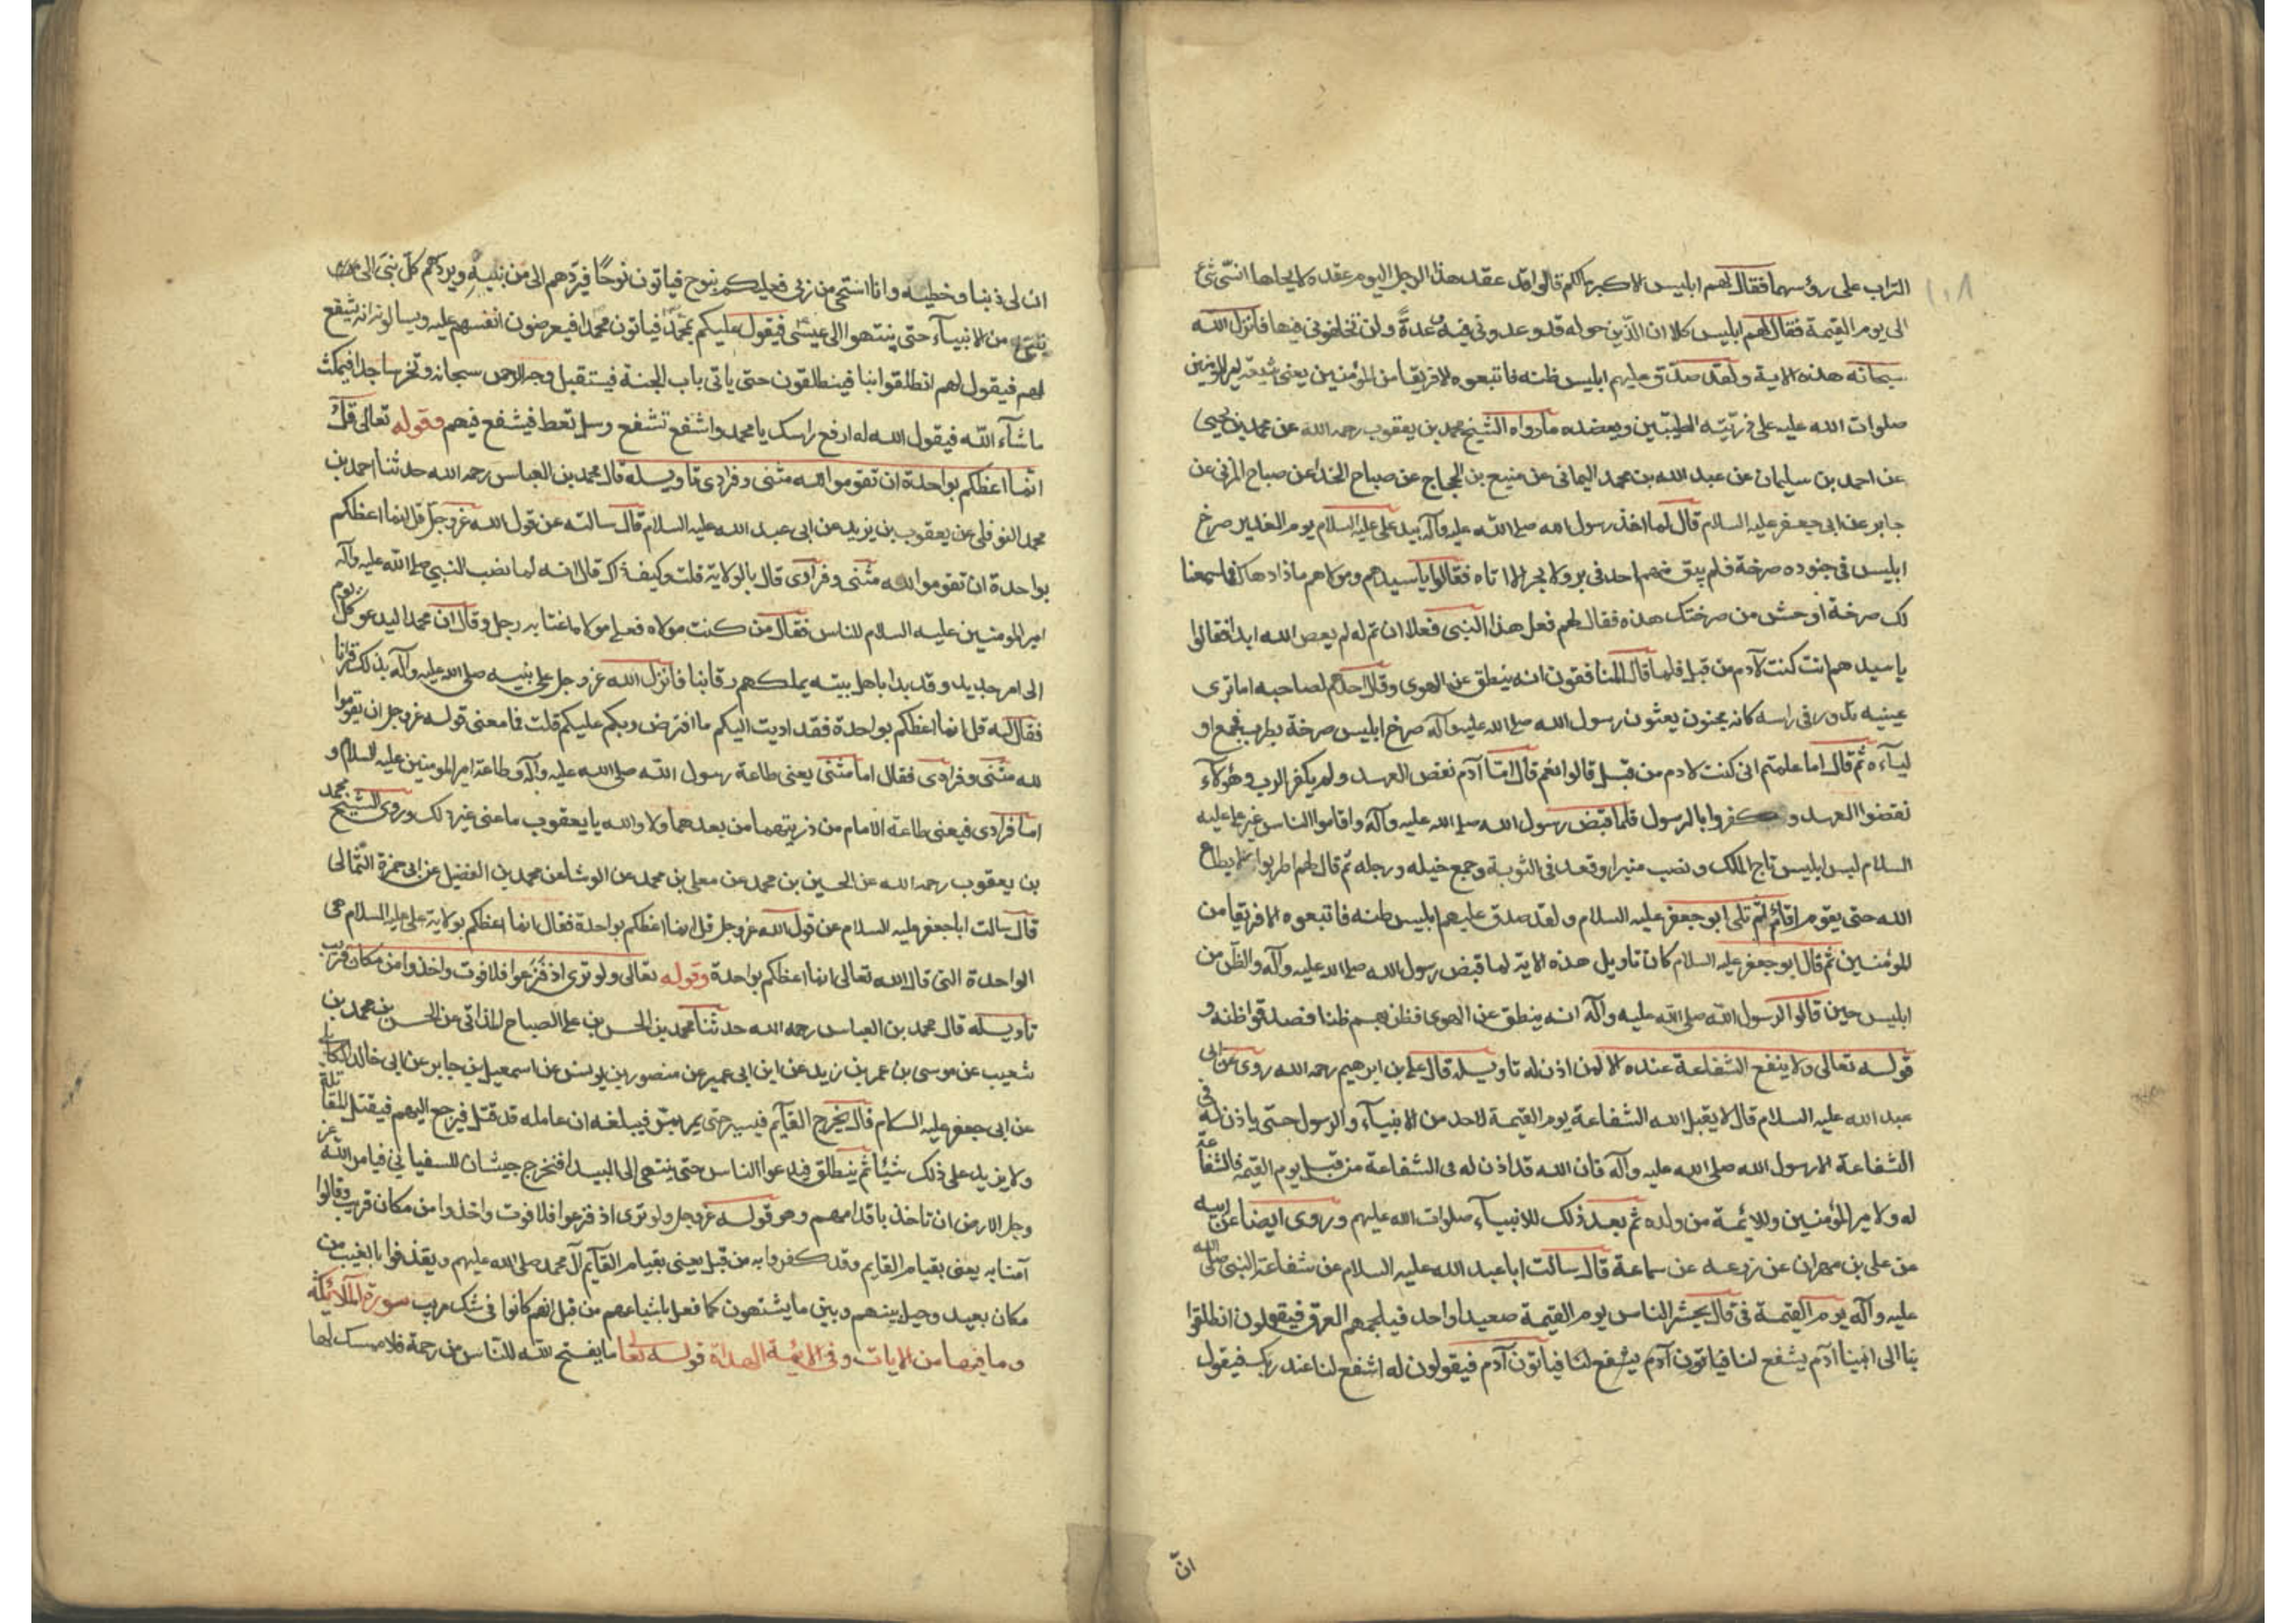 ١٠٨
التراب على رؤسهما فقال لهم ابليس الاكبر مالكم قالوا قد عقد هذا الرجل اليوم عقدة لا يحلها انسى شئ
الى يوم القيمة فقال لهم ابليس كلا ان الذين حوله قد وعدونى فيه عدةً ولن تخلفونى فيها فانزل الله
سبحانه هذه الاية ولقد صدق عليهم ابليس ظنه فاتبعوه الا فريقا من المؤمنين يعنى شيعة امير المؤمنين
صلوات الله عليه على ذريّته الطيبين ويعضده ما رواه الشيخ محمد بن يعقوب رحمه الله عن محمد بن يحيى
عن احمد بن سليمان عن عبد الله بن محمد اليمانى عن منيع بن الحجاج عن صباح الحذا عن صباح المزنى عن
جابر عن ابى جعفر عليه السلام قال لما اخذ رسول الله صلى الله عليه وآله بيد على عليه السلام يوم الغدير صرخ
ابليس فى جنوده صرخة فلم يبق منهم احد فى بر ولا بحر الا اتاه فقالوا يا سيدهم ومولاهم ماذا دهاك فما سمعنا
لك صرخة اوحش من صرختك هذه فقال لهم فعل هذا النبى فعلا ان تم له لم يعص الله ابدا فقالوا
يا سيدهم انت كنت لآدم من قبل فلما قال المنافقون انه ينطق عن الهوى وقال احدهم لصاحبه اما ترى
عينيه تدور فى راسه كانه مجنون يعنون رسول الله صلى الله عليه وآله صرخ ابليس صرخة بطرب فجمع او
ليآءه ثم قال اما علمتم انى كنت لادم من قبل قالوا نعم قال امّا آدم نقض العهد ولم يكفر الرب وهؤلآء
نقضوا العهد و كفروا بالرسول فلما قبض رسول الله صلى الله عليه وآله واقاموا الناس غير على عليه
السلام لبس ابليس تاج الملك ونصب منبرا وقعد فى الثوبة وجمع خيله ورجله ثم قال لهم اطربوا لا يطاع
الله حتى يقوم اقائم ثم تلى ابو جعفر عليه السلام ولقد صدق عليهم ابليس ظنه فاتبعوه الا فريقا من
المؤمنين ثم قال ابو جعفر عليه السلام كان تاويل هذه الاية لما قبض رسول الله صلى الله عليه وآله والظن من
ابليس حين قالوا لرسول الله صلى الله عليه وآله انه ينطق عن الهوى فظن بهم ظنا فصدقوا ظنه و
قوله تعالى ولا ينفع الشفاعة عنده الا لمن اذن له تاويله قال على بن ابرهيم رحمه الله روى عن ابى
عبد الله عليه السلام قال لا يقبل الله الشفاعة يوم القيمة لاحد من الانبيآء والرسول حتى ياذن له فى
الشفاعة الا رسول الله صلى الله عليه وآله فان الله قد اذن له فى الشفاعة من قبل يوم القيمة فالشفاعة
له ولامير المؤمنين وللائمة من ولده ثم بعد ذلك للانبيآء صلوات الله عليهم وروى ايضا عن ابيه
عن على بن مهران عن زرعه عن سماعة قال سالت ابا عبد الله عليه السلام عن شفاعة النبى صلى الله
عليه وآله يوم القيمة فى قال يحشر الناس يوم القيمة صعيدا واحد فيلجمهم العرق فيقولون انطلقوا
بنا الى ابينا آدم يشفع لنا فياتون آدم يشفع لنا فياتون آدم فيقولون له اشفع لنا عند ربك فيقول
انّ
ان لى ذنبا وخطيه وانا استحى من ربى فعليكم بنوح فياتون نوحًا فيردّهم الى من بنيه ويردّهم كلّ نبىّ الى من
من الانبيآء حتى ينتهوا الى عيسى فيقول عليكم بمحمدٍ فياتون محمدا فيعرضون انفسهم عليه ويسالونه انه يشفع
لهم فيقول لهم انطلقوا بنا فينطلقون حتى ياتى باب الجنة فيستقبل وجه الرحمن سبحانه وتخر ساجدا فيمكث
ما شآء الله فيقول الله له ارفع راسك يا محمد واشفع تشفع وسل تعط فيشفع فيهم وقوله تعالى قل
انما اعظكم بواحدة ان تقوموا لله مثنى وفرادى تاويله قال محمد بن العباس رحمه الله حدثنا احمد بن
محمد النوفلى عن يعقوب بن يزيد عن ابى عبد الله عليه السلام قال سالته عن قول الله عزوجلّ قل انما اعظكم
بواحدة ان تقوموا لله مثنى وفرادى قال بالولاية قلت وكيف ذاك قال انه لما نصب النبي صلى الله عليه وآله
امير المومنين عليه السلام للناس فقال من كنت مولاه فعلى مولاه اغتابه رجل وقال ان محمدا ليدعو كل يوم
الى امر جديد وقد بدا باهل بيته يملكهم رقابنا فانزل الله عزوجل على نبيه صلى الله عليه وآله بذلك قرانا
فقال له قل انما اعظكم بواحدة فقد اديت اليكم ما افترض ربكم عليكم قلت فما معنى قوله عزوجل ان تقوموا
لله مثنى وفرادى فقال اما مثنى يعنى طاعة رسول الله صلى الله عليه وآله وطاعة امير المومنين عليه السلام و
اما فرادى فيعنى طاعة الامام من ذريتهما من بعدهما ولا والله يا يعقوب ما عنى غير ذلك وروى الشيخ محمد
بن يعقوب رحمه الله عن الحسين بن محمد عن معلى بن محمد عن الوشا عن محمد بن الفضيل عن ابى حمزة الثمّالى
قال سالت ابا جعفر عليه السلام عن قول الله عزوجل قل انما اعظكم بواحدة فقال انما اعظكم بولاية على عليه السلام هى
الواحدة التى قال الله تعالى انما اعظكم بواحدة وقوله تعالى ولو ترى اذ فُزِعوا فلا فوت واخذوا من مكان قريب
تاويله قال محمد بن العباس رحمه الله حدثنا محمد بن الحسن بن على الصباح المدائنى عن الحسن بن محمد بن
شعيب عن موسى بن عمر بن زيد عن ابن ابى عمير عن منصور بن يونس عن اسمعيل بن جابر عن ابى خالد الكابلى
عن ابى جعفر عليه السلام قال يخرج القآيم فيسير حتى يمر بمر فيبلغه ان عامله قد قتل فيرجع اليهم فيقتل المقاتلة
ولا يزيد على ذلك شيئا ثم ينطلق فيدعوا الناس حتى ينتهى الى البيدا فتخرج جيشان للسفيانى فيامر الله عز
وجل الارض ان تاخذ باقدامهم وهو قوله عزوجل ولو ترى اذ فزعوا فلا فوت واخذوا من مكان قريب وقالوا
آمنا به يعنى بقيام القايم وقد كفروا به من قبل يعنى بقيام القآيم آل محمد صلى الله عليهم ويقذفوا بالغيب من
مكان بعيد وحيل بينهم وبين ما يشتهون كما فعل باشياعهم من قبل انهم كانوا فى شك مريب سورة الملآئكة
وما فيها من الايات وفى الائمة الهداة قوله تعالى ما يفتح الله للناس من رحمة فلا ممسك لها